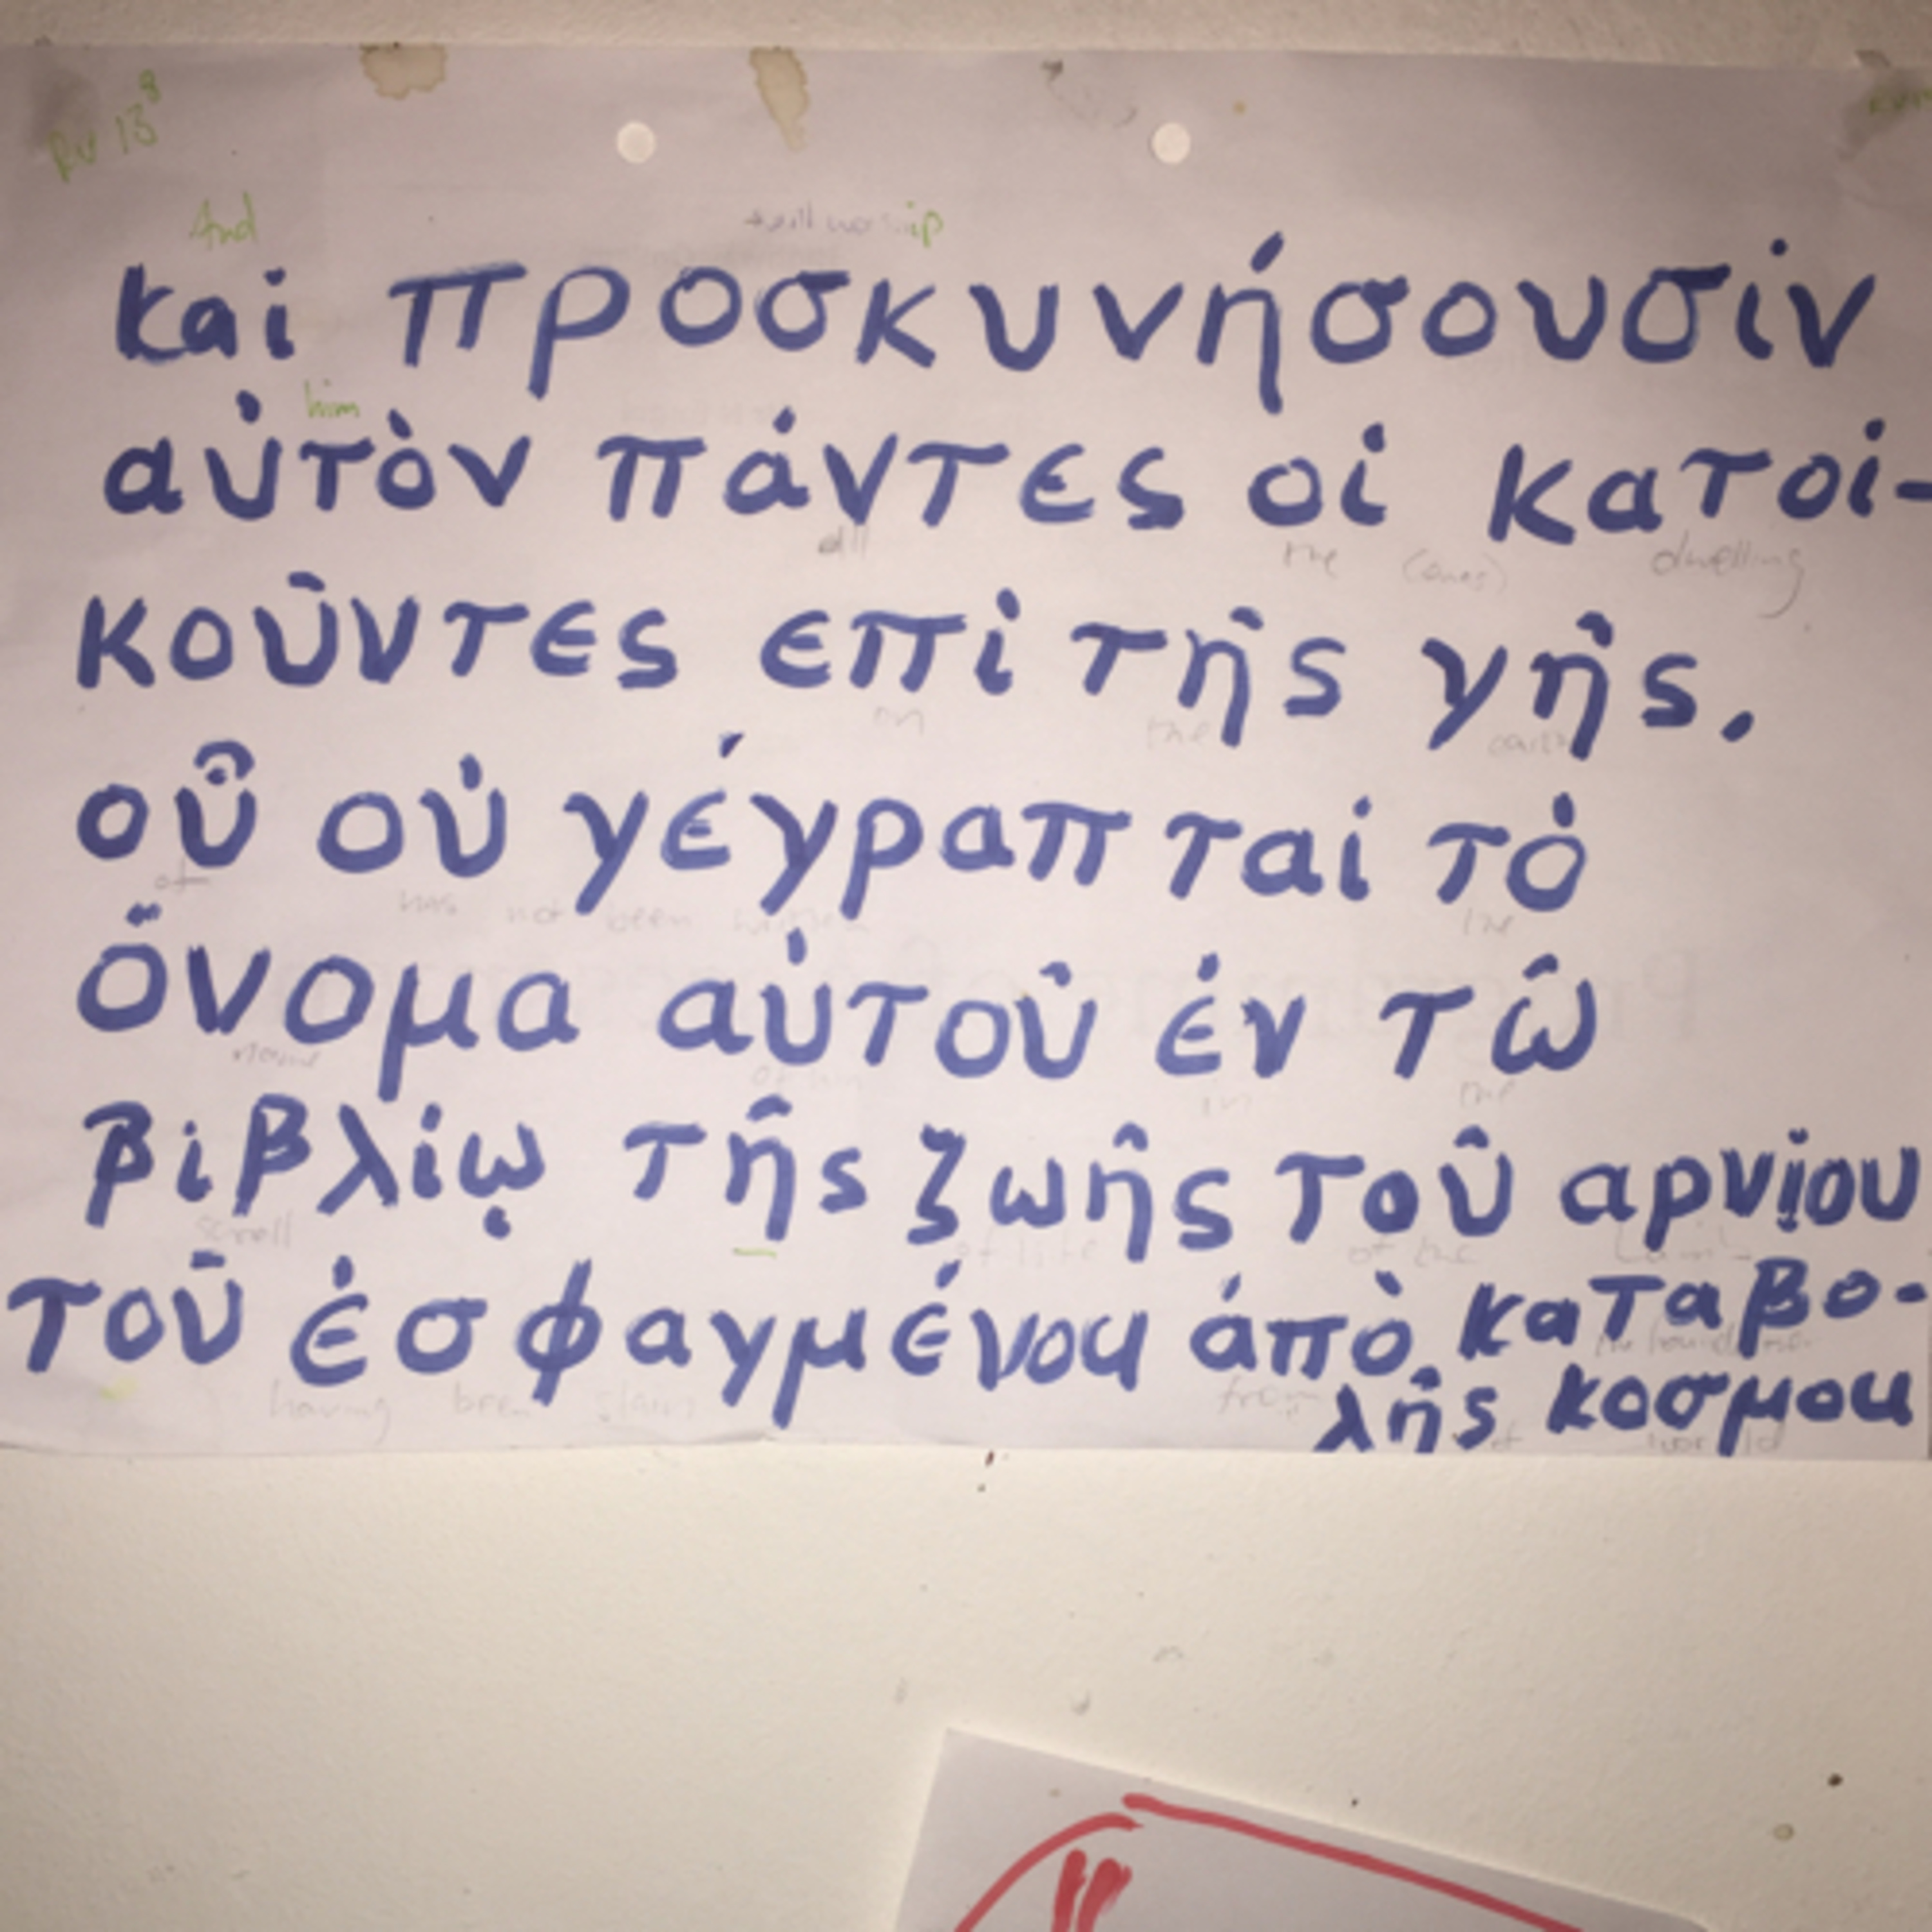 Rv 13⁸
And will worship
καὶ προσκυνήσουσιν
him
αὐτὸν πάντες οἱ κατοι-
all the (ones) dwelling
κοῦντες επὶ τῆς γῆς.
on the earth
οὗ οὐ γέγραπται τὸ
of has not been written the
ὄνομα αὐτοῦ ἐν τῶ
name of him in the
βιβλίῳ τῆς ζωῆς τοῦ αρνίου
scroll of life of the Lamb
τοῦ ἐσφαγμένου ἀπὸ καταβο-
having been slain from the foundation
λῆς κοσμου
of world